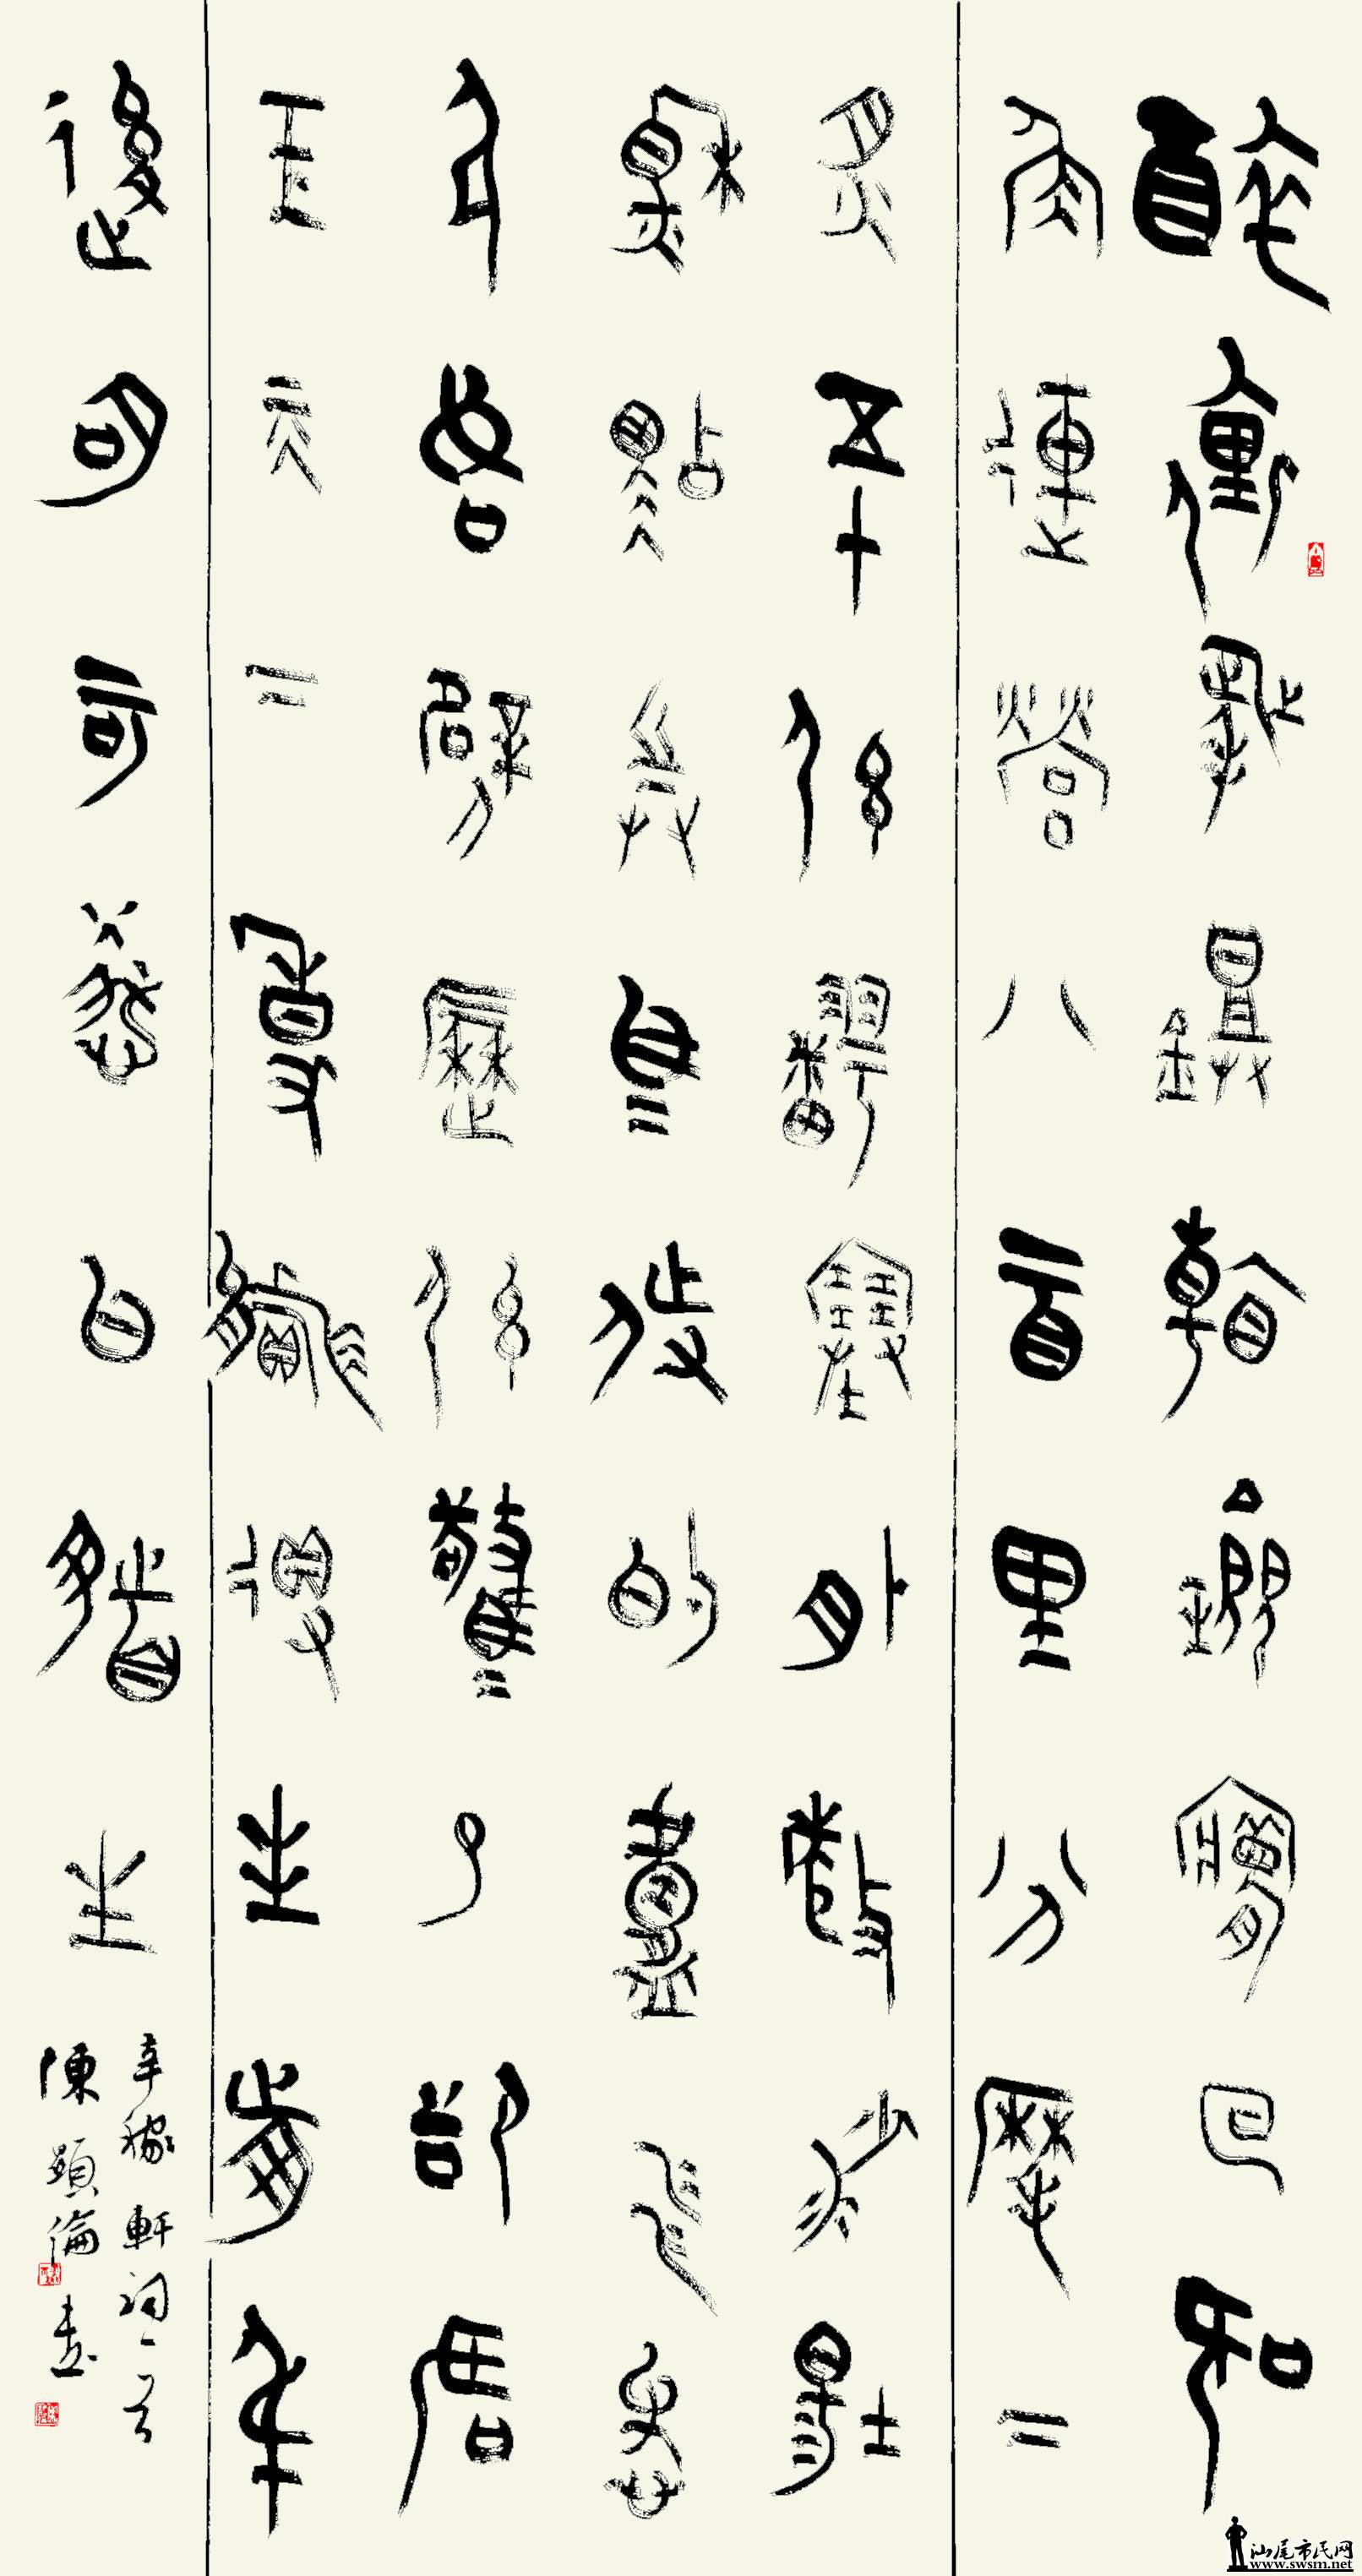 醉裏挑鐙看劍夢回吹
角連營八百里分麾下
炙五十弦翻塞外聲沙場
秋點兵馬作的盧飛快
弓如霹靂弦驚了卻君
王天下事贏得生前身
後名可憐白髮生
辛稼軒詞一首
陳顯倫書
汕尾市民网
www.swsm.net